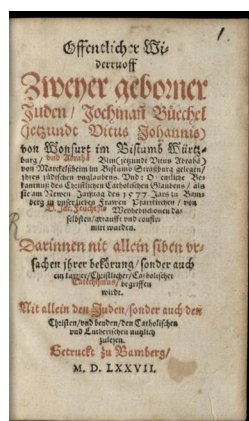 1.
Offentlicher Wi-
derruoff
Zweyer geborner
Juden / Jochiman Büechel
jetzundt Vitus Johannis
von Wonfurt im Bistumb Würtz-
burg / und Abrah Blum jetzundt Veius Abrahã
von Marckelßheim im Bistumb Straßburg gelegen /
ihres jüdischen unglaubens. Und: Offentliche Be-
kantnuß des Christlichen Catholischen Glaubens / als
sie am Newen Jarstag des 1577 Jars zu Bam-
berg zu unser lieben Frawen Pfarrkirchen / von
Weyhebischouen da-
selbsten / getaufft und confir-
mirt wurden.
Darinnen nit allein siben vr-
sachen jhrer bekörung / sonder auch
ein kurtzer / Christlicher / Catholischer
Catechismus / begriffen
wirdt.
Mit allein den Juden / sonder auch den
Christen / vnd heyden / den Catholischen
vnd Lutherischen nutzlich
zulesen.
Getruckt zu Bamberg /
M. D. LXXVII.